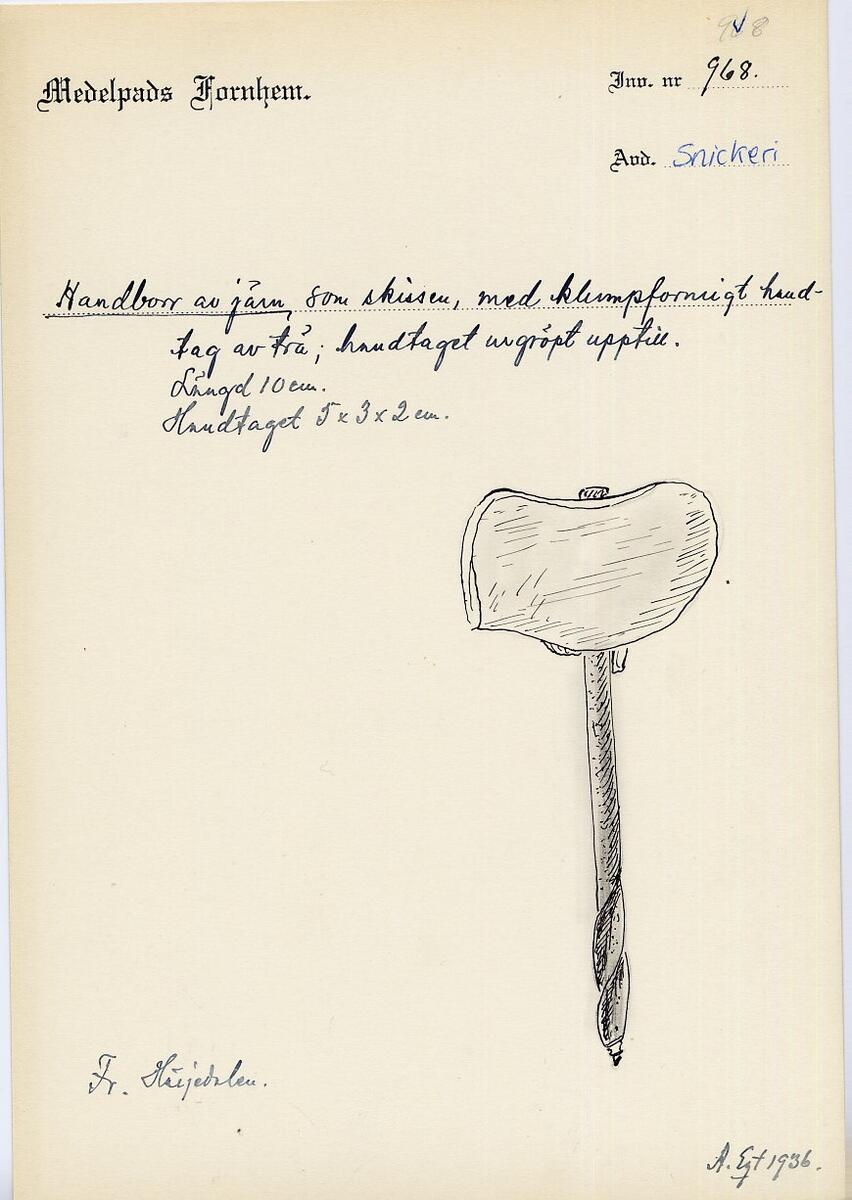 968
Medelpads Fornhem.
Inv. nr 968.
Avd. Snickeri
Handborr av järn, som skissen, med klumpformigt hand-
tag av trä; handtaget urgröpt upptill.
Längd 10 cm.
Handtaget 5 x 3 x 2 cm.
Fr. Härjedalen.
A. Egt 1936.